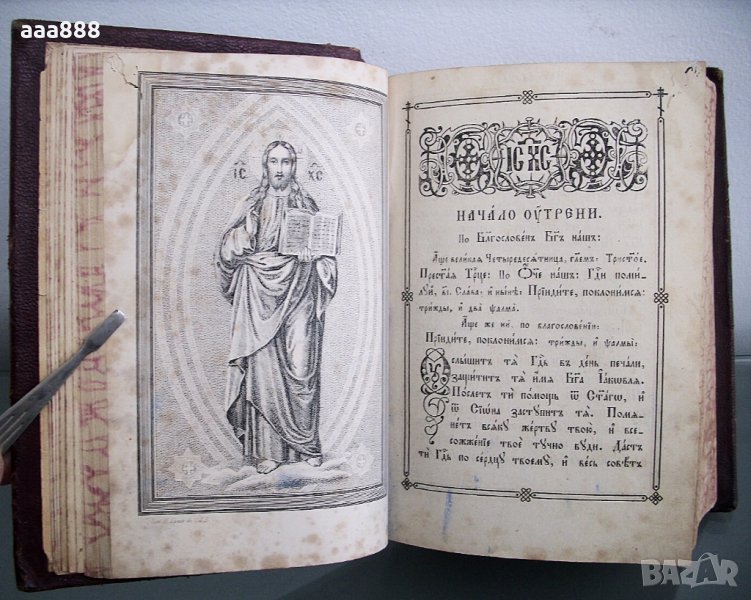 aaa888
ІС ХС
ІС ХС
НАЧАЛО ОУ҆ТРЕНИ.
По Бл҃гослове́нъ Бг҃ъ на́шъ:
А҆́ще вели́каѧ Четыредесѧ́тница, гл҃емъ: Трист҃о́е.
Прест҃а́ѧ Трⷪ҇це: По Ѻ҆́ч҃е на́шъ: Гдⷭ҇и поми́-
лꙋй, в҃і. Сла́ва: и҆ ны́нѣ: Прїиди́те, поклони́мсѧ:
три́жды, и҆ два̀ ѱалма̑.
А҆́ще же нѝ, по благослове́нїи:
Прїиди́те, поклони́мсѧ: три́жды, и҆ ѱалмы̀:
Оу҆слы́шитъ тѧ̀ Гдⷭ҇ь въ де́нь печа́ли,
защи́титъ тѧ̀ и҆́мѧ Бг҃а І҆а́кѡвлѧ.
По́слетъ тѝ по́мощь ѿ Ст҃а́гѡ, и҆
ѿ Сїѡ́на застꙋ́питъ тѧ̀. Помѧ-
не́тъ всѧ́кꙋ же́ртвꙋ твою̀, и҆ все-
сожже́нїе твоѐ тꙋ́чно бꙋ́ди. Да́стъ
тѝ Гдⷭ҇ь по се́рдцꙋ твоемꙋ̀, и҆ ве́сь совѣ́тъ
BAZAR